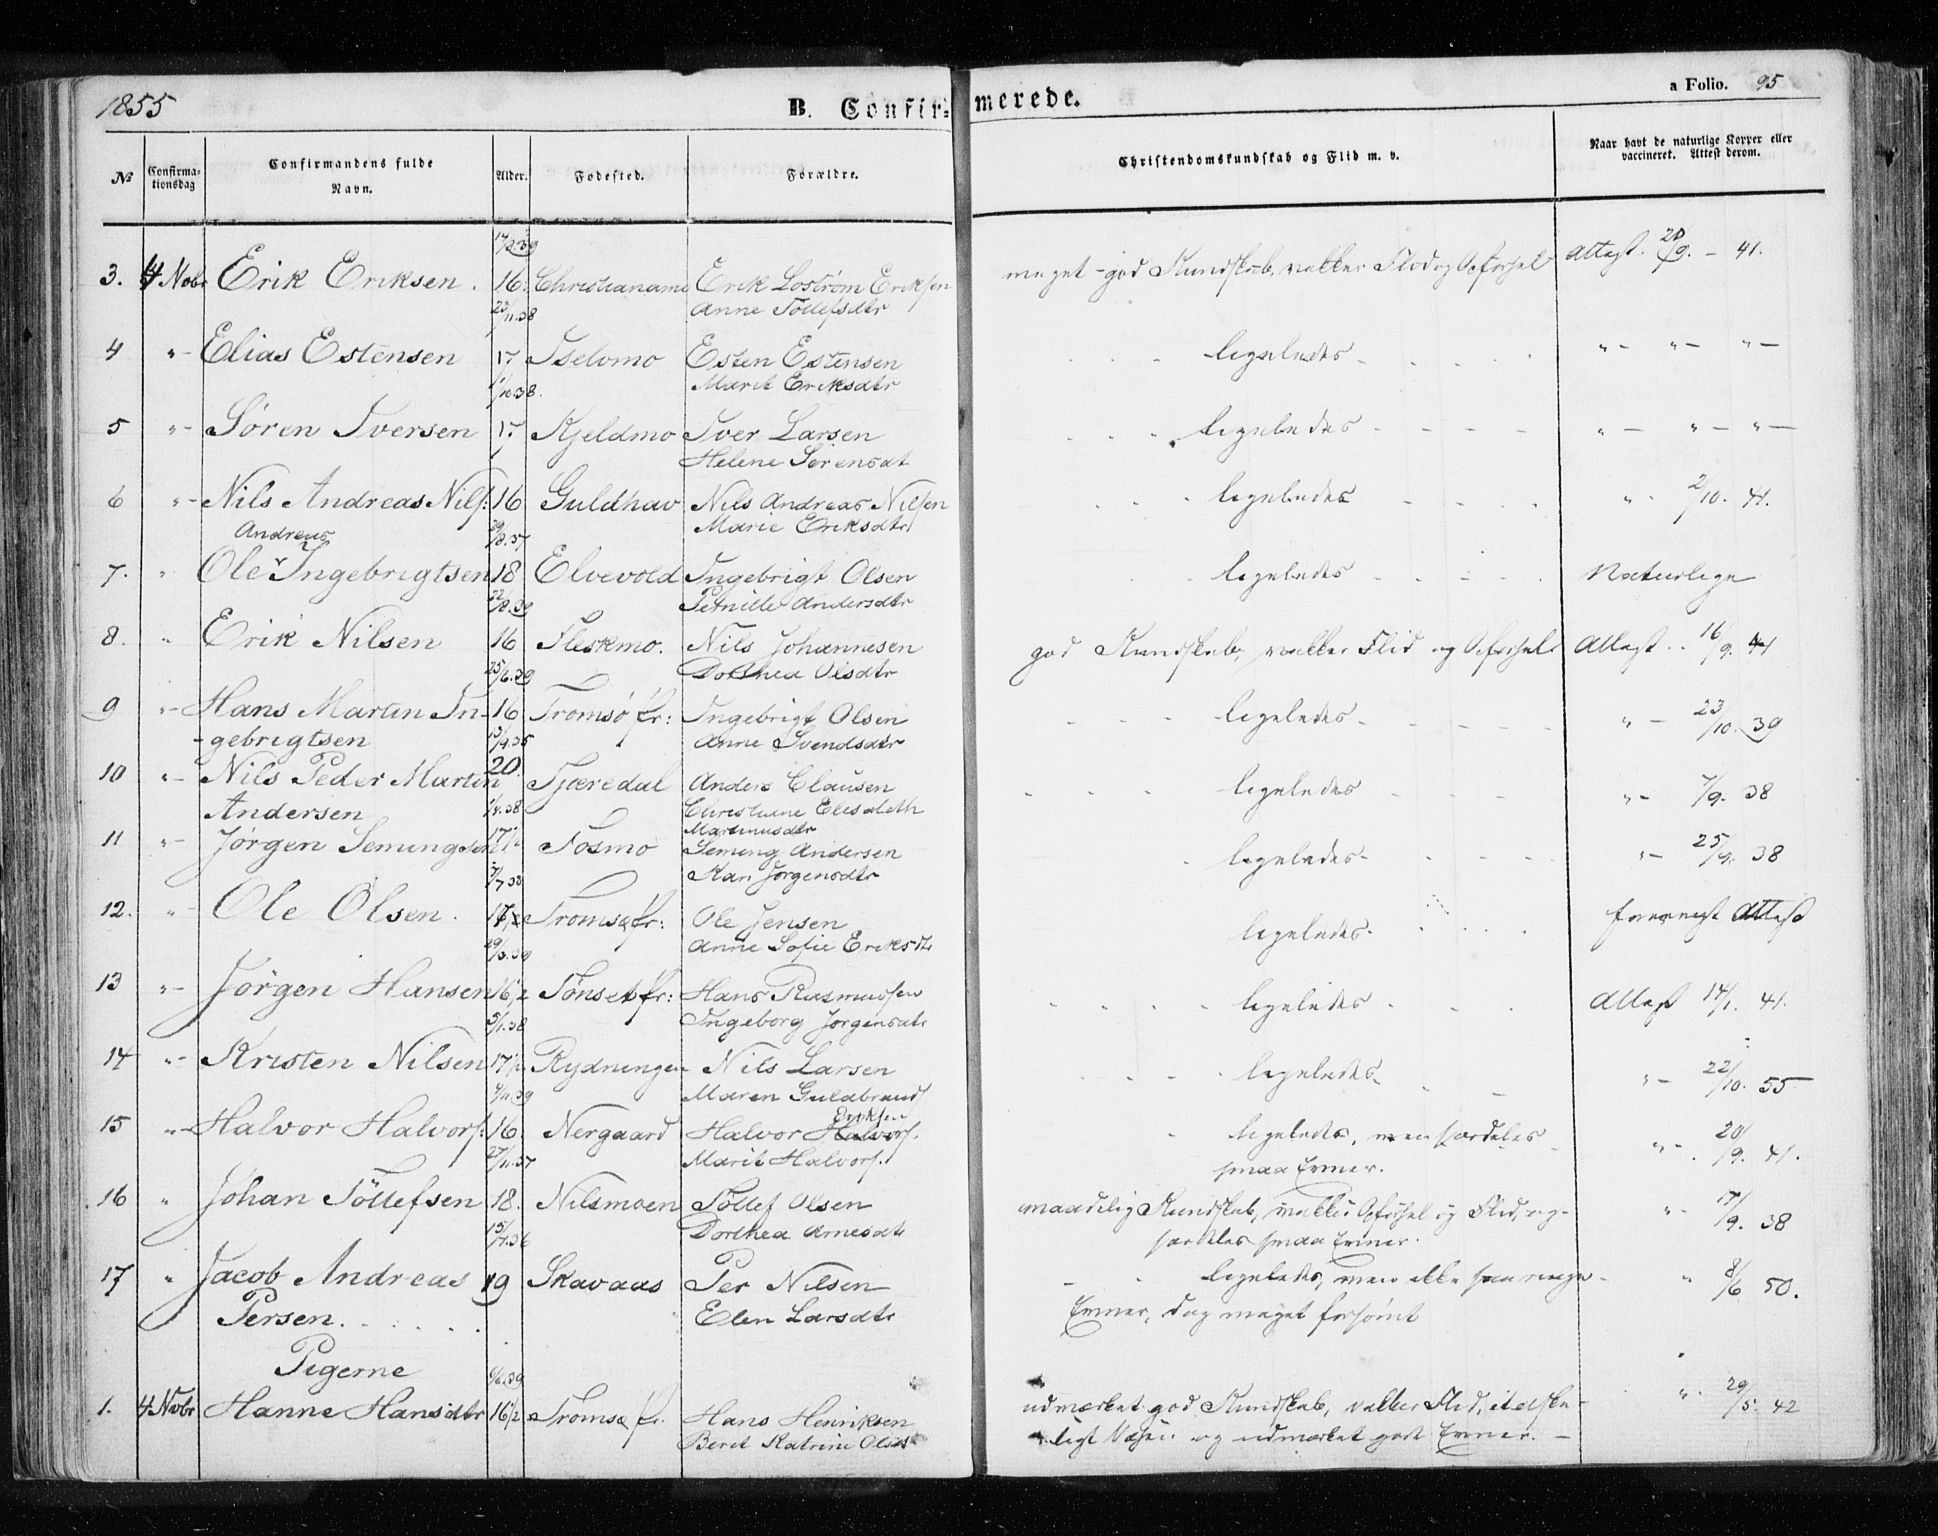 1855 B. Confirmerede. a Folio. 95
No Confirmationsdag Confirmandens fulde Navn. Alder. Fødested. Forældre. Christendomskundskab og Flid m. v. Naar havt de naturlige Kopper eller vaccineret. Attest derom.
17/8.39
3. 4 Nobr Erik Eriksen. 16. Christianamo Erik Lostrøm Eriksen meget god Kundskab, vakker Flid og Opførsel Attest. 20/9. - 41.
23/11.38 Anne Tollefsdtr
4 "- Elias Estensen 17 Iselomo Esten Estensen ligeledes - "- "- "-
1/10.38. Marit Eriksdtr
5 "- Søren Iversen 17 Kjeldmo Iver Larsen ligeledes - "- "- "-
Helene Sørensdt
6 "- Nils Andreas Nils: 16 Guldhav Nils Andreas Nilsen ligeledes " - 2/10. 41.
Andreas 29/8.37 Marie Eriksdtr
7. " Ole Ingebrigtsen 18 Elvevold Ingebrigt Olsen ligeledes Naturlige
22/8.39 Pernille Andersdtr
8. " Erik Nilsen 16 Fleskmo. Nils Johannesen god Kundskab, vakker Flid og Opførsel Attest.. 16/9. 41
25/6.39 Dorthea Olsdtr
9 "- Hans Martin In- 16 Tromsø fr: Ingebrigt Olsen ligeledes - " - 23/10. 39
-gebrigtsen 13/9.35 Anne Svendsdtr
10 "- Nils Peder Martin 20. Tjæredal Anders Clausen ligeledes "- 7/9. 38
Andersen 1/4.38 Christiane Elisabeth
Martinusdtr
11 "- Jørgen Semingsen 17 1/2 Fosmo Seming Andersen ligeledes - "- 25/9. 38
3/7 38 Kari Jørgensdtr
12. "- Ole Olsen. 17 1/2 Tromsø fr: Ole Jensen ligeledes - forevist Attest
29/3.39 Anne Sofie Eriksdtr
13 "- Jørgen Hansen 16 1/2 Tønset fr: Hans Rasmussen ligeledes Attest 14/1. 41.
5/1.38 Ingeborg Jørgensdtr
14 "- Kristen Nilsen 17 1/2 Rydningen Nils Larsen ligeledes "- 22/10. 55
4/11.39 Maren Guldbrands
Eriksen
15 "- Halvor Halvors: 16. Nergaard Halvor Halvors. ligeledes, men særdeles "- 20/9. 41.
27/11.37 Marit Halvors. smaa Evner.
16 " Johan Tollefsen 18. Nilsmoen Tollef Olsen maadelig Kundskab, vakker Opførsel og Flid, og "- 17/9. 38
15/7.36 Dorthea Arnesdtr særdeles smaa Evner.
17 " Jacob Andreas 19 Skavaas Per Nilsen ligeledes, men ikke saa ringe " 8/6 50.
Persen. Elen Larsdtr Evner, dog meget forsømt
Pigerne
6/6.39
1. 4 Nobr Hanne Hansdtr 16 1/2 Tromsø fr. Hans Henriksen udmærket god Kundskab, vakker Flid, "- 29/5. 42
Beret Katrine Olsdt og udmærket gode Evner. -